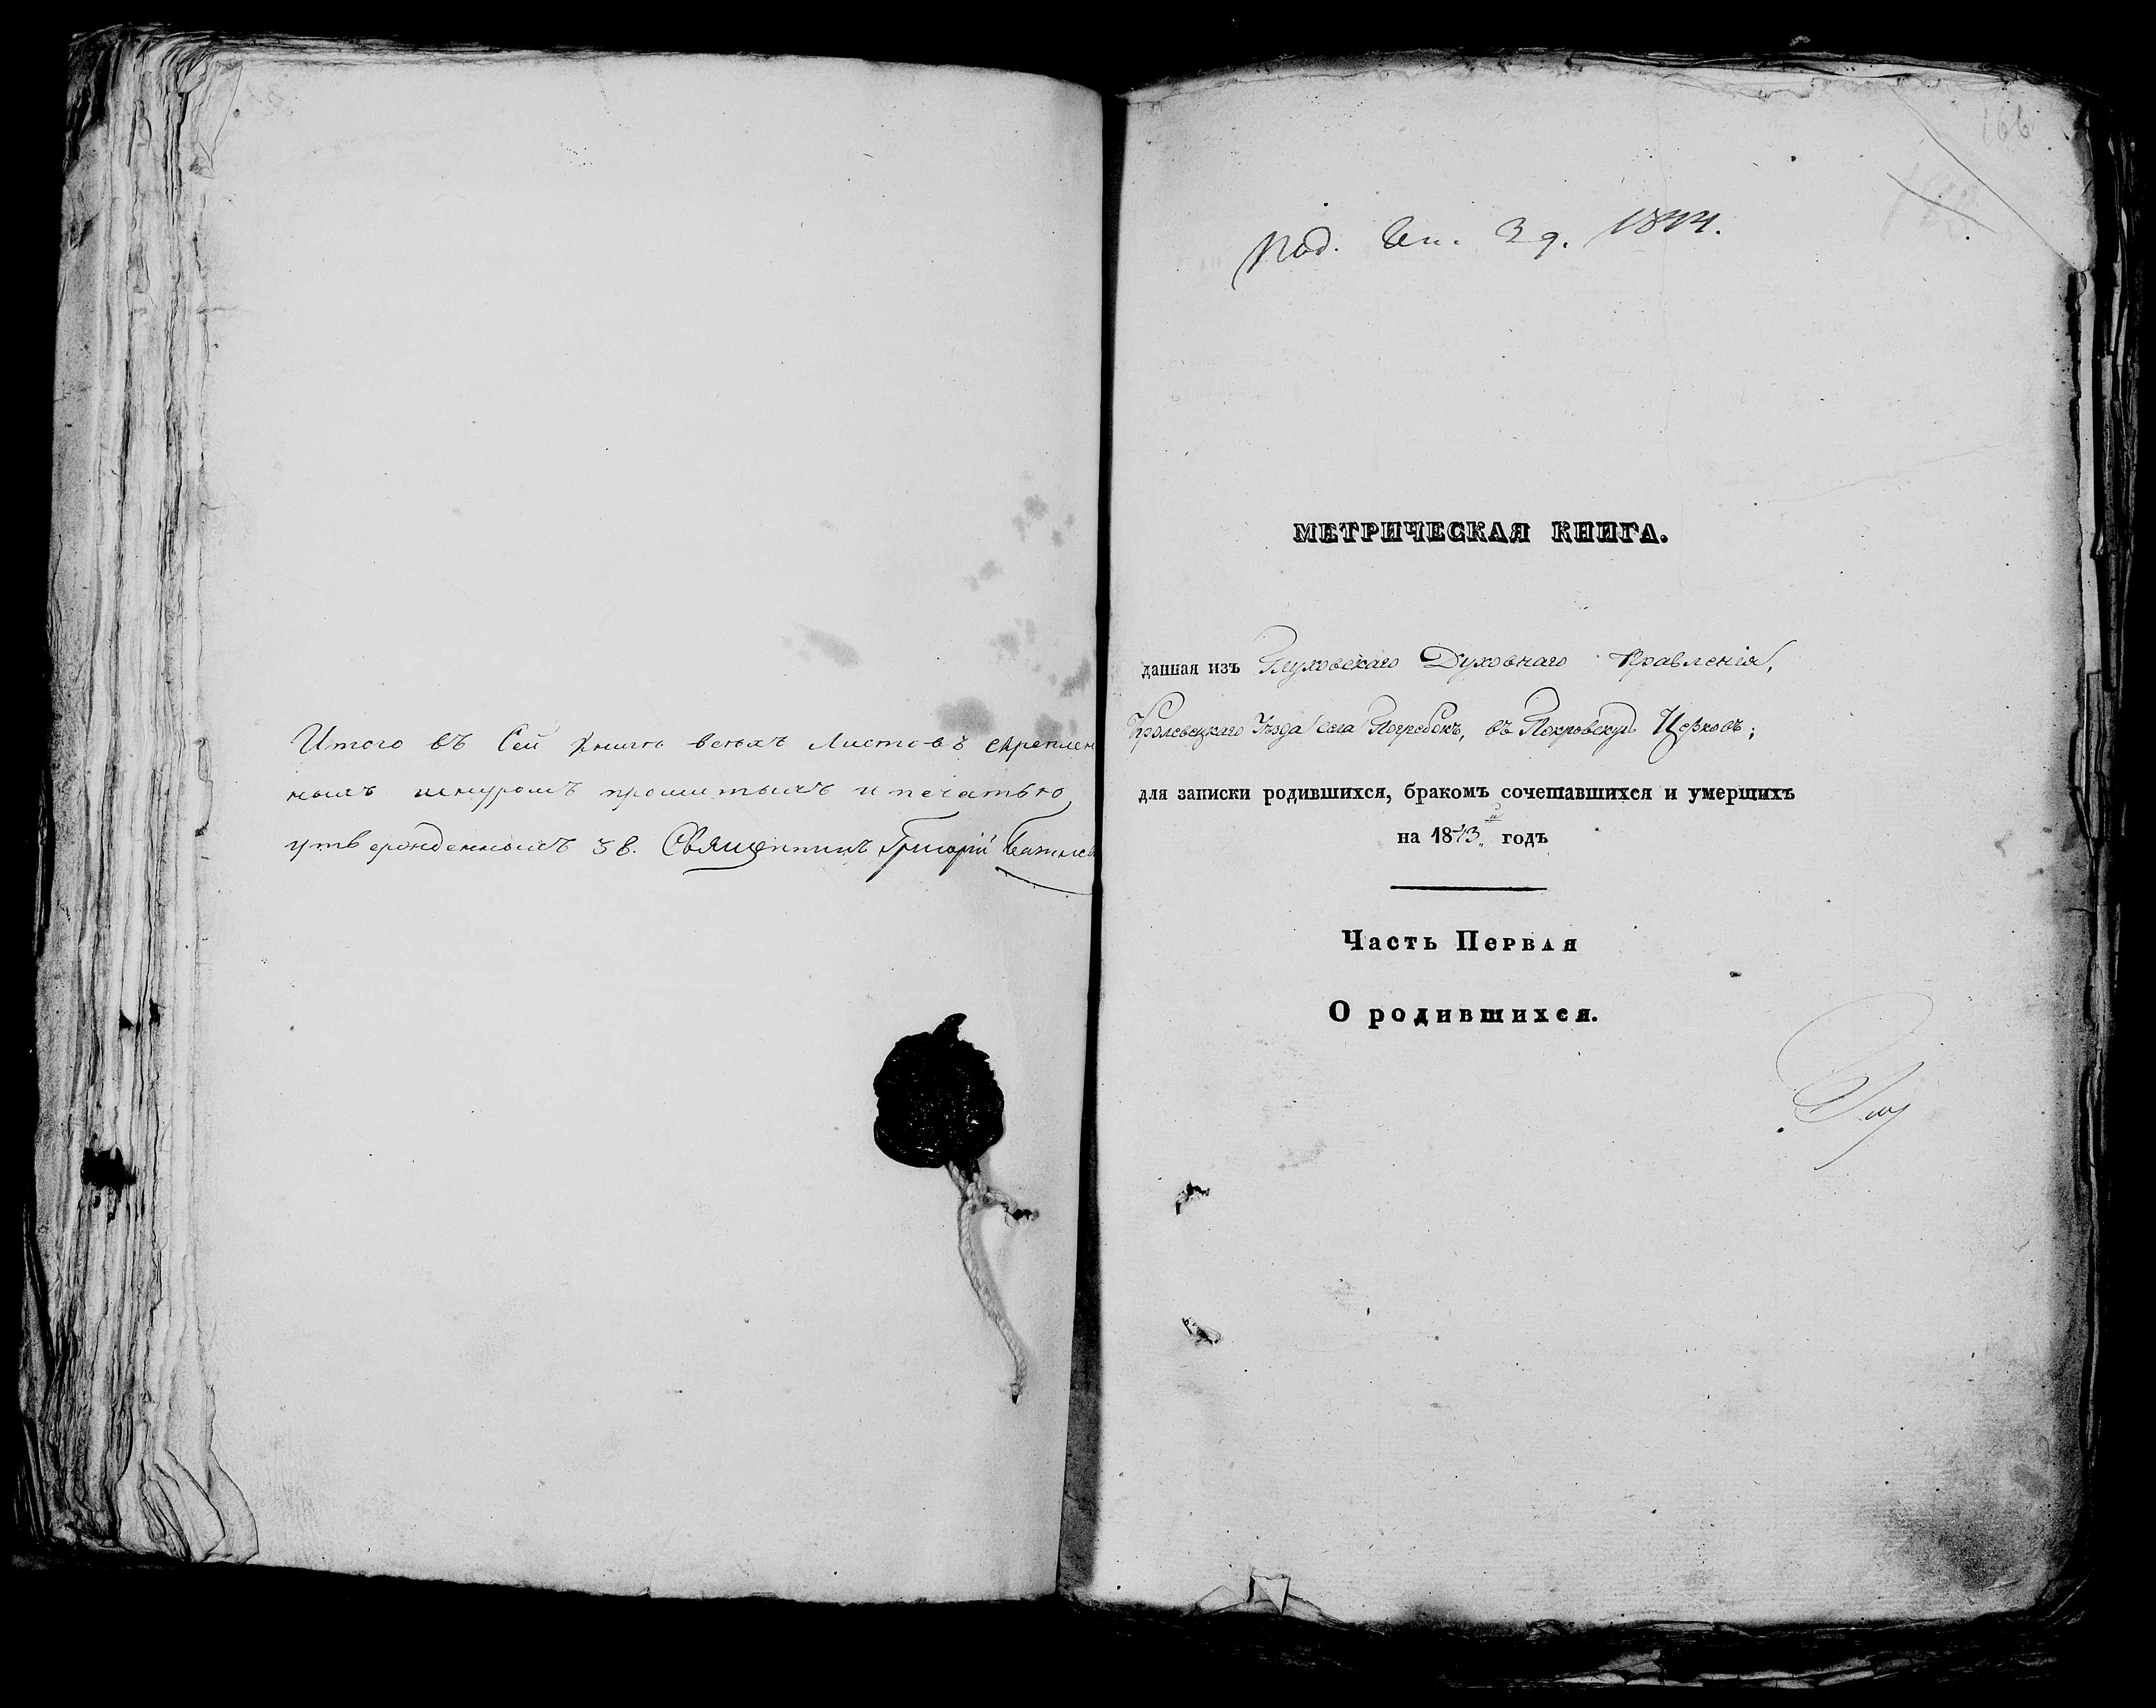 Итого въ Сей книгѣ всѣхъ Листовъ скреплен
ныхъ шнуромъ прошитыхъ и печатью
утвержденныхъ Священникъ Григорій
166
1844.
МЕТРИЧЕСКАЯ КНИГА.
данная изъ Глуховскаго Духовнаго Правленія,
Кролевецкаго Уѣзда села Погребокъ, въ Покровскую Церковь;
для записки родившихся, бракомъ сочетавшихся и умерщихъ
на 1843й годъ
Часть Первая
О родившихся.